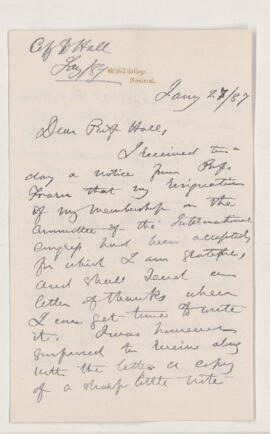 Hall
McGill College,
Montreal.
Jany 27/87
Dear Prof Hall,
I received to
day a notice from Prof.
that my resignation
of my membership in the
Committee of the International
Congress had been accepted
for which I am grateful,
and shall send a
letter of thanks when
I can get time to write
it. I was however
surprised to receive along
with the letter a copy
of a sharp little note